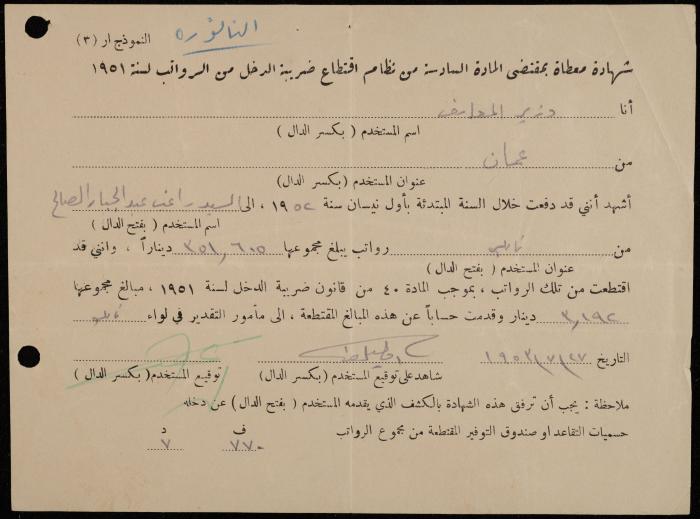 الناقوره
النموذج ار (٣)
شهادة معطاة بمقتضى المادة السادسة من نظام اقتطاع ضريبة الدخل من الرواتب لسنة ١٩٥١
أنا وزير المعارف
اسم المستخدم (بكسر الدال)
من عمان
عنوان المستخدم (بكسر الدال)
أشهد أنني قد دفعت خلال السنة المبتدئة بأول نيسان سنة ١٩٥٢ ، الى السيد راغب عبد الجبار الصالح
اسم المستخدم (بفتح الدال)
من نابلس رواتب يبلغ مجموعها ٣٥١,٦٠٥ ديناراً ، وانني قد
عنوان المستخدم (بفتح الدال)
اقتطعت من تلك الرواتب ، بموجب المادة ٤٠ من قانون ضريبة الدخل لسنة ١٩٥١ ، مبالغ مجموعها
٣,١٩٢ دينار وقدمت حساباً عن هذه المبالغ المقتطعة ، الى مأمور التقدير في لواء نابلس
التاريخ ٢٧/٧/١٩٥٣
شاهد على توقيع المستخدم (بكسر الدال) توقيع المستخدم (بكسر الدال)
ملاحظة : يجب أن ترفق هذه الشهادة بالكشف الذي يقدمه المستخدم (بفتح الدال) عن دخله
ف د
حسميات التقاعد او صندوق التوفير المقتطعة من مجموع الرواتب ٧٧٠ ٧